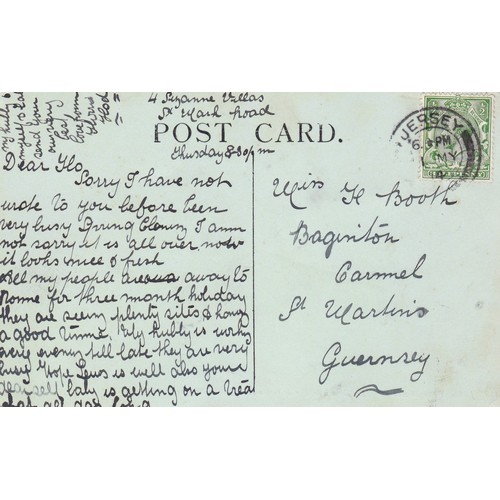 4 Suzanne Villas
St Mark Road
POST CARD.
Thursday 8-30 pm
Dear Flo,
Sorry I have not
wrote to you before been
very busy Spring Cleanin I am
not sorry it is all over now
it looks nice & fresh
All my people are away to
for three month holiday
they are seeing plenty sites & having
a good time. My hubby is workin
every evening till late they are very
busy Hope is well also your
dear self baby is getting on a treat
JERSEY
6. PM
MY
Miss H Booth
Baginton
Carmel
St Martins
Guernsey
my hubby
myself &
send your
Love from